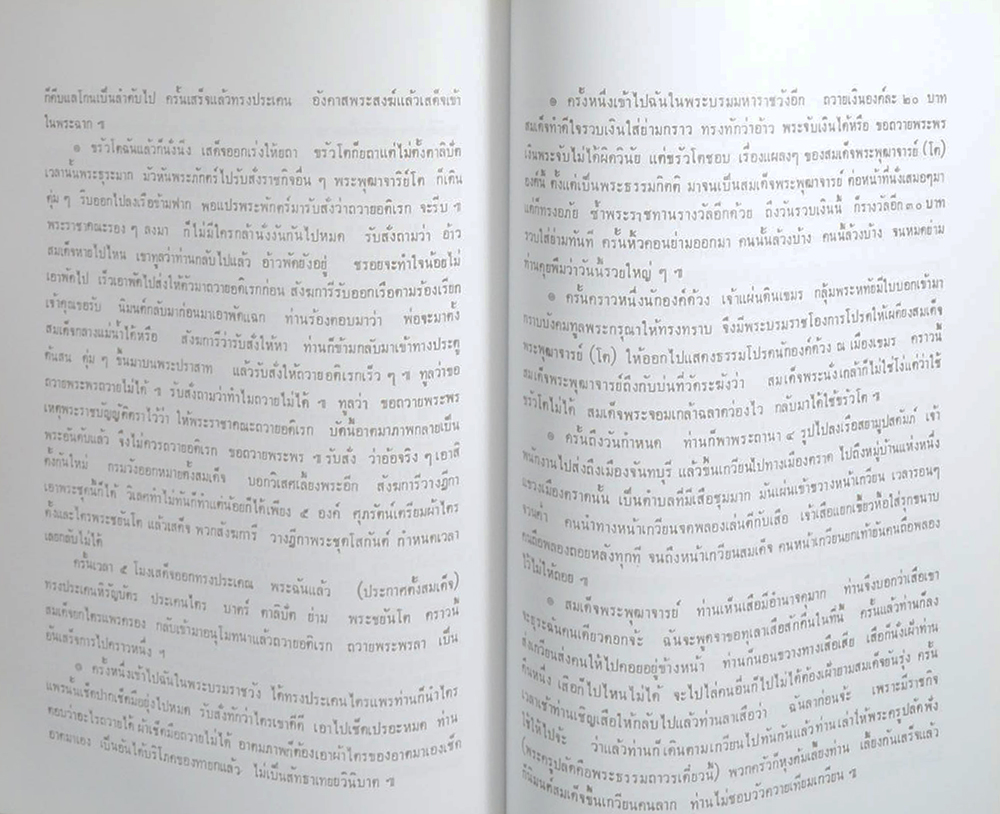 ก็คืบแลโกนเป็นลำดับไป ครั้นเสร็จแล้วทรงประเคน อังคาสพระสงฆ์แล้วเสด็จเข้า
ในพระฉาก ๚
๏ ขรัวโตฉันแล้วก็นั่งนิ่ง เสด็จออกเร่งให้ยถา ขรัวโตก็ยถาแต่ไม่ตั้งตาลิปัต
เวลานั้นพระธุระมาก มัวหันพระภักตร์ไปรับสั่งราชกิจอื่น ๆ พระพุฒาจาริย์โต ก็เดิน
ตุ่ม ๆ รีบออกไปลงเรือข้ามฟาก พอแปรพระพักตร์มารับสั่งว่าถวายอดิเรก จะรีบ ๚
พระราชาคณะรอง ๆ ลงมา ก็ไม่มีใครกล้านั่งงันกันไปหมด รับสั่งถามว่า อ้าว
สมเด็จหายไปไหน เขาทูลว่าท่านกลับไปแล้ว อ้าวพัดยังอยู่ ชรอยจะทำใจน้อยไม่
เอาพัดไป เร็วเอาพัดไปส่งให้ตัวมาถวายอดิเรกก่อน สังฆการีรีบออกเรือตามร้องเรียก
เจ้าคุณขอรับ นิมนต์กลับมาก่อนมาเอาพัดแฉก ท่านร้องตอบมาว่า พ่อจะมาตั้ง
สมเด็จกลางแม่น้ำได้หรือ สังฆการีว่ารับสั่งให้หา ท่านก็ข้ามกลับมาเข้าทางประตู
ต้นสน ตุ่ม ๆ ขึ้นมาบนพระปราสาท แล้วรับสั่งให้ถวายอดิเรกเร็ว ๆ ๚ ทูลว่าขอ
ถวายพระพรถวายไม่ได้ ๚ รับสั่งถามว่าทำไมถวายไม่ได้ ๚ ทูลว่า ขอถวายพระพร
เหตุพระราชบัญญัติตราไว้ว่า ให้พระราชาคณะถวายอดิเรก บัดนี้อาตมาภาพกลายเป็น
พระอันดับแล้ว จึงไม่ควรถวายอดิเรก ขอถวายพระพร ๚ รับสั่ง ว่าอ้อจริง ๆ เอาสิ
ตั้งกันใหม่ กรมวังออกหมายตั้งสมเด็จ บอกวิเสศเลี้ยงพระอีก สังฆการีวางฎีกา
เอาพระชุดนี้ก็ได้ วิเสศทำไม่ทันก็ทำแต่น้อยก็ได้เพียง ๕ องค์ ศุภรัตน์เตรียมผ้าไตร
ตั้งและไตรพระชยันโต แล้วเสด็จ พวกสังฆการี วางฎีกาพระชุดโสกันต์ กำหนดเวลา
เลยกลับไม่ได้
ครั้นเวลา ๕ โมงเสด็จออกทรงประเคณ พระฉันแล้ว (ประกาศตั้งสมเด็จ)
ทรงประเคนหิรัญบัตร ประเคนไตร บาตร์ ตาลิปัต ย่าม พระชยันโต คราวนี้
สมเด็จยกไตรแพรครอง กลับเข้ามาอนุโมทนาแล้วถวายอดิเรก ถวายพระพรลา เป็น
อันเสร็จการไปคราวหนึ่ง ๆ
๏ ครั้งหนึ่งเข้าไปฉันในพระบรมราชวัง ได้ทรงประเคนไตรแพรท่านก็นำไตร
แพรนั้นเช็ดปากเช็ดมือยุ่งไปหมด รับสั่งทักว่าไตรเขาดีดี เอาไปเช็ดเปรอะหมด ท่าน
ตอบว่าอะไรถวายได้ ผ้าเช็ดมือถวายไม่ได้ อาตมภาพก็ต้องเอาผ้าไตรของอาตมาเองเช็ด
อาตมาเอง เป็นอันได้บริโภคของทายกแล้ว ไม่เป็นสัทธาเทยยวินิบาต ๚
๏ ครั้งหนึ่งเข้าไปฉันในพระบรมมหาราชวังอีก ถวายเงินองค์ละ ๒๐ บาท
สมเด็จทำดีใจรวบเงินใส่ย่ามกราว ทรงทักว่าอ้าว พระจับเงินได้หรือ ขอถวายพระพร
เงินพระจับไม่ได้ผิดวินัย แต่ขรัวโตชอบ เรื่องแผลงๆ ของสมเด็จพระพุฒาจารย์ (โต)
องค์นี้ ตั้งแต่เป็นพระธรรมกิตติ มาจนเป็นสมเด็จพระพุฒาจารย์ ต่อหน้าที่นั่งเสมอๆมา
แต่ก็ทรงอภัย ซ้ำพระราชทานรางวัลอีกด้วย ถึงวันรวบเงินนี้ ก็รางวัลอีก ๓๐ บาท
รวบใส่ย่ามทันที ครั้นหิ้วคอนย่ามออกมา คนนั้นล้วงบ้าง คนนี้ล้วงบ้าง จนหมดย่าม
ท่านคุยพึมว่าวันนี้รวยใหญ่ ๆ ๚
๏ ครั้นคราวหนึ่งนักองค์ด้วง เจ้าแผ่นดินเขมร กลุ้มพระหทัยมีใบบอกเข้ามา
กราบบังคมทูลพระกรุณาให้ทรงทราบ จึงมีพระบรมราชโองการโปรดให้เผดียงสมเด็จ
พระพุฒาจารย์ (โต) ให้ออกไปแสดงธรรมโปรดนักองค์ด้วง ณ เมืองเขมร คราวนี้
สมเด็จพระพุฒาจารย์ถึงกับบ่นที่วัดระฆังว่า สมเด็จพระนั่งเกล้าก็ไม่ใช่โง่แต่ว่าใช้
ขรัวโตไม่ได้ สมเด็จพระจอมเกล้าฉลาดว่องไว กลับมาได้ใช้ขรัวโต ๚
๏ ครั้นถึงวันกำหนด ท่านก็พาพระถานา ๔ รูปไปลงเรือสยามูปสดัมภ์ เจ้า
พนักงานไปส่งถึงเมืองจันทบุรี แล้วขึ้นเกวียนไปทางเมืองตราด ไปถึงหมู่บ้านแห่งหนึ่ง
แขวงเมืองตราดนั้น เป็นตำบลที่มีเสือชุมมาก มันเผ่นเข้าขวางหน้าเกวียน เวลารอนๆ
จวนค่ำ คนนำทางหน้าเกวียนจดพลองเล่นตีกับเสือ เจ้าเสือแยกเขี้ยวหือใส่รุกขนาบ
คนถือพลองถอยหลังทุกที จนถึงหน้าเกวียนสมเด็จ คนหน้าเกวียนยกเท้ายันคนถือพลอง
ไว้ไม่ให้ถอย ๚
๏ สมเด็จพระพุฒาจารย์ ท่านเห็นเสือมีอำนาจมาก ท่านจึงบอกว่าเสือเขา
จะธุระฉันคนเดียวดอกจ้ะ ฉันจะพูดจาขอทุเลาเสือสักคืนในที่นี้ ครั้นแล้วท่านก็ลง
ส่งเกวียนส่งคนให้ไปคอยอยู่ข้างหน้า ท่านก็นอนขวางทางเสือเสีย เสือก็นั่งเฝ้าท่าน
คืนหนึ่ง เสือก็ไปไหนไม่ได้ จะไปใส่คนอื่นก็ไปไม่ได้ต้องเฝ้ายามสมเด็จยันรุ่ง ครั้น
เวลาเช้าท่านเชิญเสือให้กลับไปแล้วท่านลาเสือว่า ฉันลาก่อนจ้ะ เพราะมีราชกิจ
ใช้ให้ไปจ้ะ ว่าแล้วท่านก็เดินตามเกวียนไปทันกันแล้วท่านเล่าให้พระครูปลัดฟัง
(พระครูปลัดคือพระธรรมถาวรเดี๋ยวนี้) พวกครัวก็หุงต้มเลี้ยงท่าน เลี้ยงกันเสร็จแล้ว
ก็นิมนต์สมเด็จขึ้นเกวียนคนลาก ท่านไม่ชอบวัวควายเทียมเกวียน ๚